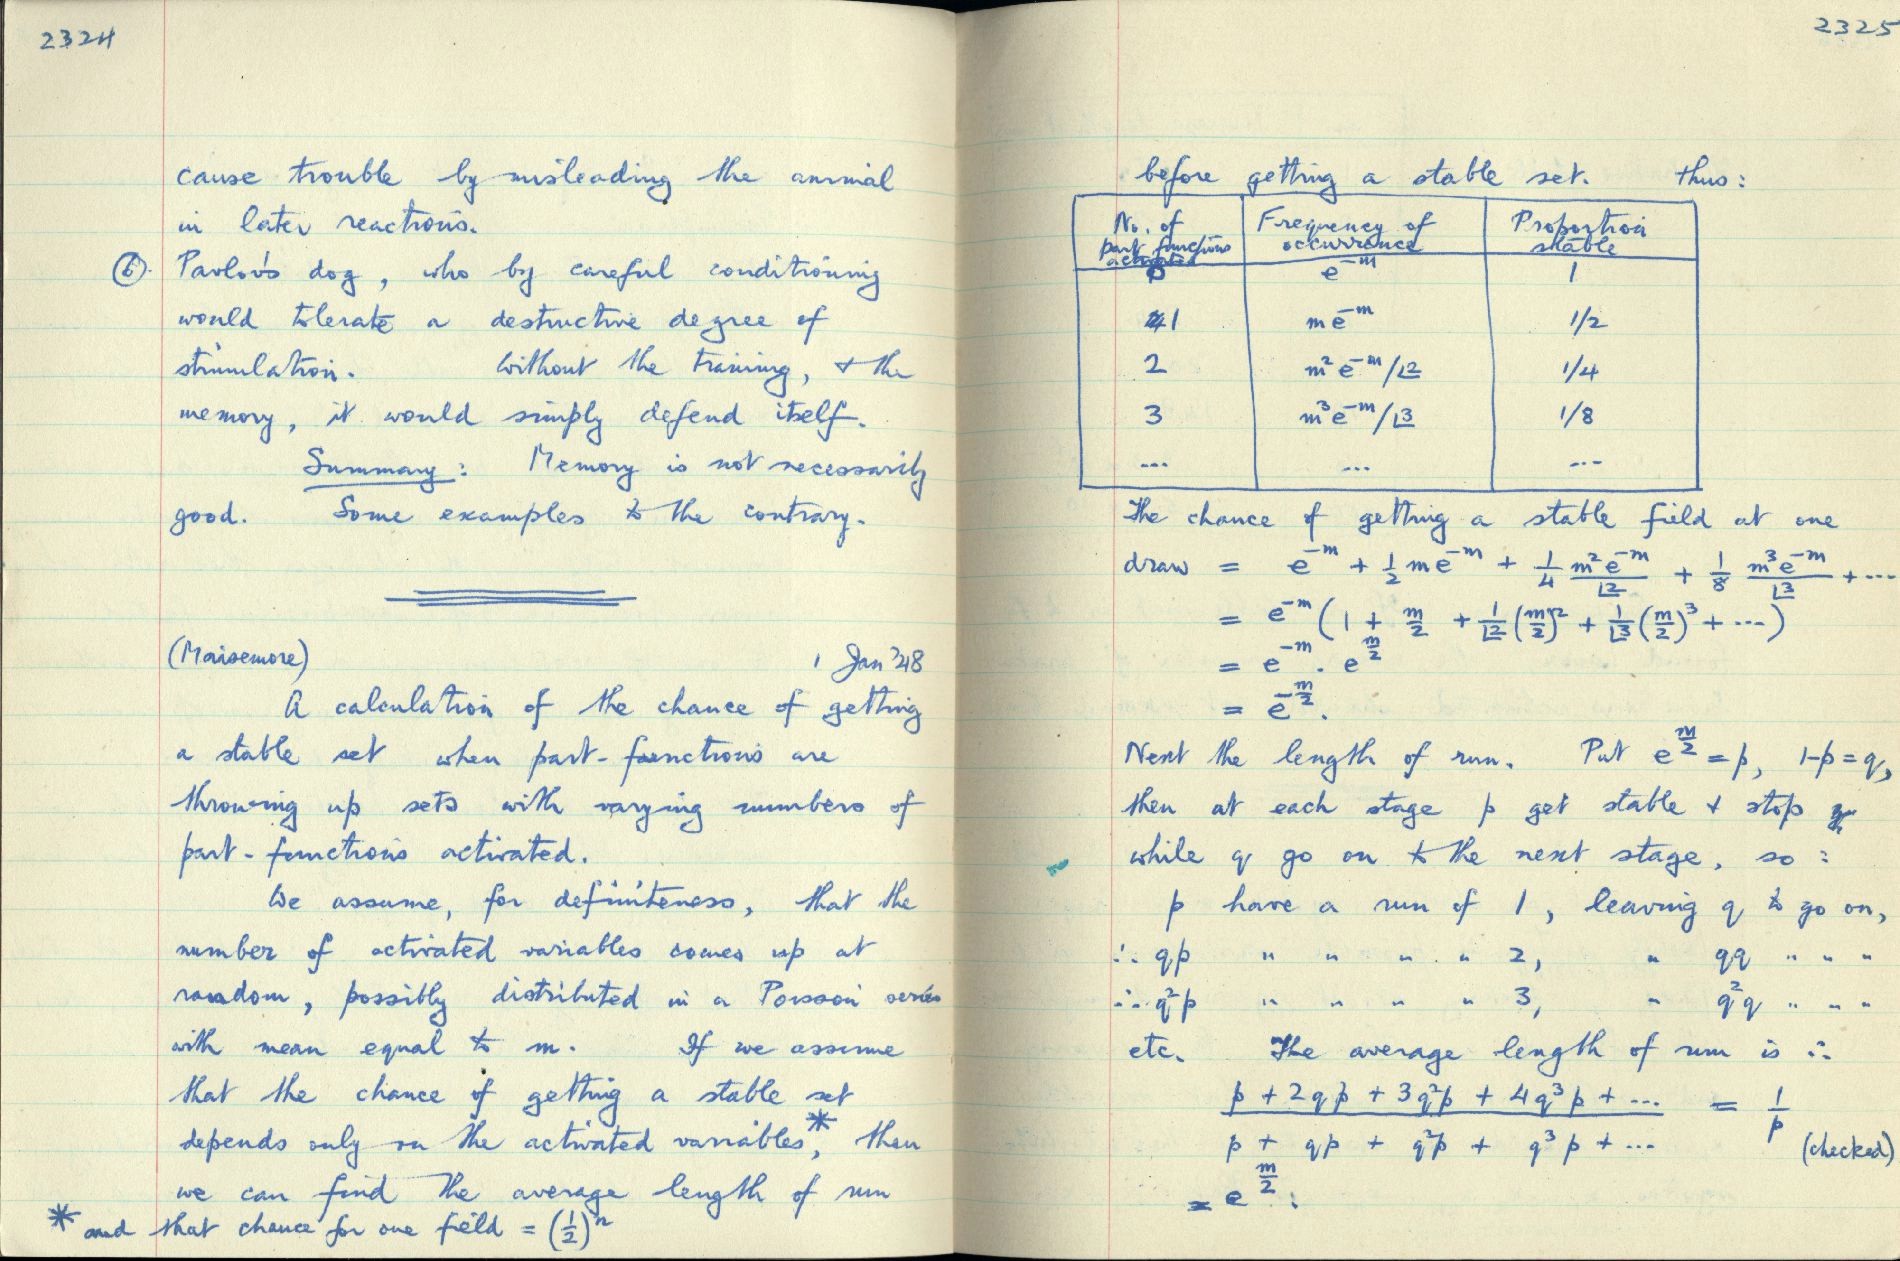 2324
cause trouble by misleading the animal
in later reactions.
⑥. Pavlov's dog, who by careful conditioning
would tolerate a destructive degree of
stimulation. Without the training, & the
memory, it would simply defend itself.
Summary: Memory is not necessarily
good. Some examples to the contrary.
(Maisemore) 1 Jan '48
A calculation of the chance of getting
a stable set when part-functions are
throwing up sets with varying numbers of
part-functions activated.
We assume, for definiteness, that the
number of activated variables comes up at
random, possibly distributed in a Poisson series
with mean equal to m. If we assume
that the chance of getting a stable set
depends only on the activated variables,* then
we can find the average length of run
* and that chance for one field = (1/2)ⁿ
2325
before getting a stable set. Thus:
No. of part functions activated | Frequency of occurrence | Proportion stable
0 | e⁻ᵐ | 1
1 | me⁻ᵐ | 1/2
2 | m²e⁻ᵐ/|2 | 1/4
3 | m³e⁻ᵐ/|3 | 1/8
... | ... | ...
The chance of getting a stable field at one
draw = e⁻ᵐ + 1/2 me⁻ᵐ + 1/4 m²e⁻ᵐ/|2 + 1/8 m³e⁻ᵐ/|3 + ...
= e⁻ᵐ (1 + m/2 + 1/|2 (m/2)² + 1/|3 (m/2)³ + ...)
= e⁻ᵐ . e^(m/2)
= e^(-m/2).
Next the length of run. Put e^(m/2) = p, 1-p = q,
then at each stage p get stable & stop
while q go on to the next stage, so:
p have a run of 1, leaving q to go on,
∴ qp " " " " 2, " qq " " "
∴ q²p " " " " 3, " q²q " " "
etc. The average length of run is ∴
p + 2qp + 3q²p + 4q³p + ... = 1/p
p + qp + q²p + q³p + ... (checked)
= e^(m/2) :